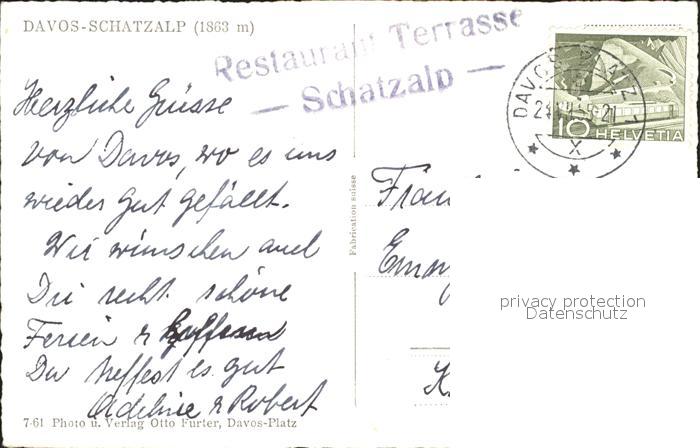 DAVOS-SCHATZALP (1863 m)
Restaurant Terrasse
— Schatzalp —
DAVOS PLATZ
10 HELVETIA
X
Herzliche Grüsse
von Davos, wo es uns
wieder gut gefällt.
Wir wünschen auch
Dir recht schöne
Ferien & hoffen
Du treffest es gut
Adeline & Robert
Fabrication suisse
Fräu
Emmy
K
privacy protection
Datenschutz
7-61 Photo u. Verlag Otto Furter, Davos-Platz